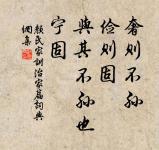 奢則不孫
儉則固
與其不孫也
宁固
顏氏家訓治家篇詞典
網集